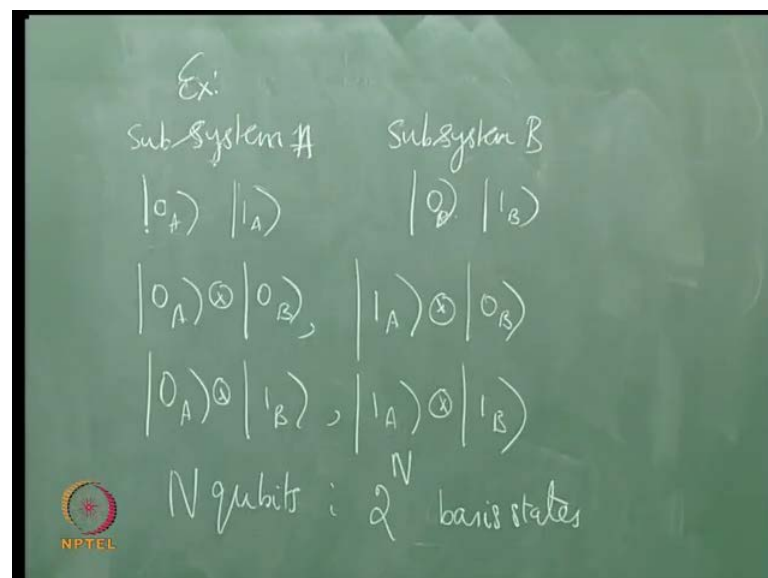 Ex:
Subsystem A Subsystem B
|0_A⟩ |1_A⟩ |0_B⟩ |1_B⟩
|0_A⟩⊗|0_B⟩, |1_A⟩⊗|0_B⟩
|0_A⟩⊗|1_B⟩, |1_A⟩⊗|1_B⟩
N qubits : 2^N basis states
NPTEL